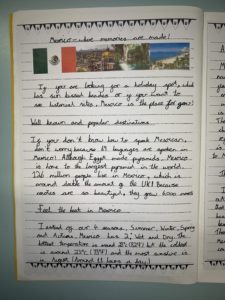 Mexico - where memories are made!
If you are looking for a holiday spot, which
has sun kissed beaches or if you want to
see historical sites. Mexico is the place for you!
Well known and popular destinations
If you don't know how to speak Mexican,
don't worry because 69 languages are spoken in
Mexico! Although Egypt made pyramids, Mexico
is home to the largest pyramid in the world.
126 million people live in Mexico, which is
around double the amount of the UK! Because
are so beautiful, they grow 6,000
Feel the heat in Mexico
Instead of our 4 seasons, Summer, Winter, Spring
and Autumn, Mexico has 2, Wet and Dry. The
hottest temperature is 28°C (82°F) but the coldest
is around 23°C (73°F) and the most sunshine is
in August (Around 13 hours a day.)